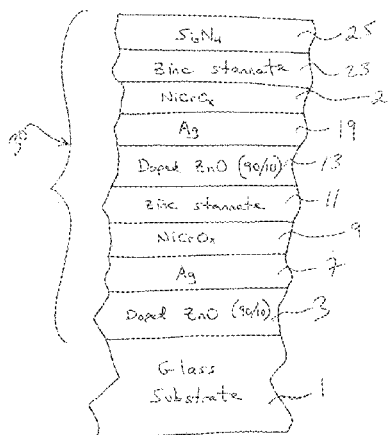 Si3N4 25
Zinc stannate 23
NiCrOx 2
Ag 19
Doped ZnO (90/10) 13
Zinc stannate 11
NiCrOx 9
Ag 7
30
Doped ZnO (90/10) 3
Glass
Substrate 1